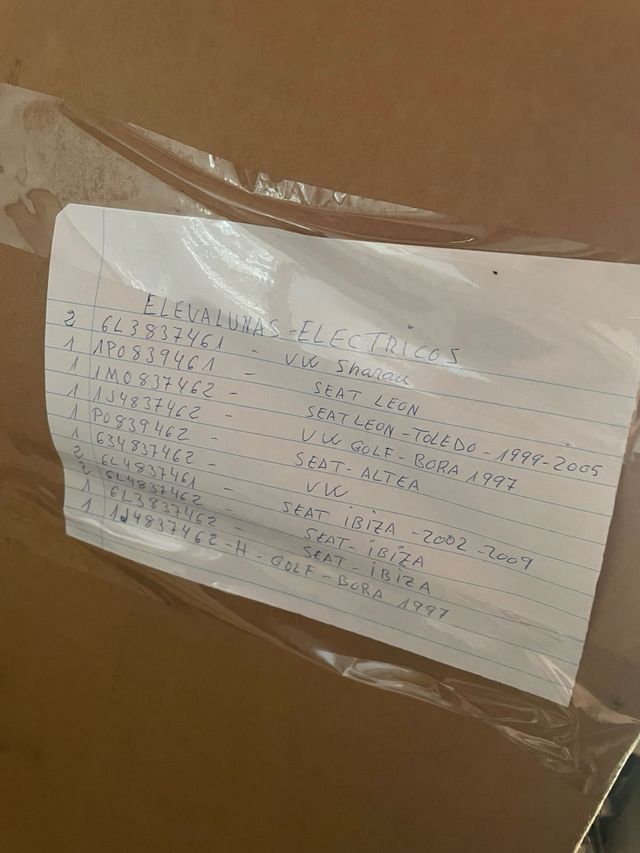 ELEVALUNAS-ELECTRICOS
2 6L3837461 - VW Sharan
1 1P0839461 - SEAT LEON
1 1M0837462 - SEAT LEON-TOLEDO-1999-2005
1 1J4837462 - VW GOLF-BORA 1997
1 P0839462 - SEAT-ALTEA
1 634837462 - VW
2 6L4837461 - SEAT iBiZA -2002-2009
2 6L4837462 - SEAT-iBiZA
1 6L3837462 - SEAT-iBiZA
1 1J4837462-H-GOLF-BORA 1997